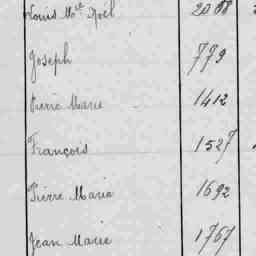 Louis Mie Noël 2088
Joseph 779
Pierre Marie 1412
François 1527
Pierre Marie 1692
Jean Marie 1767